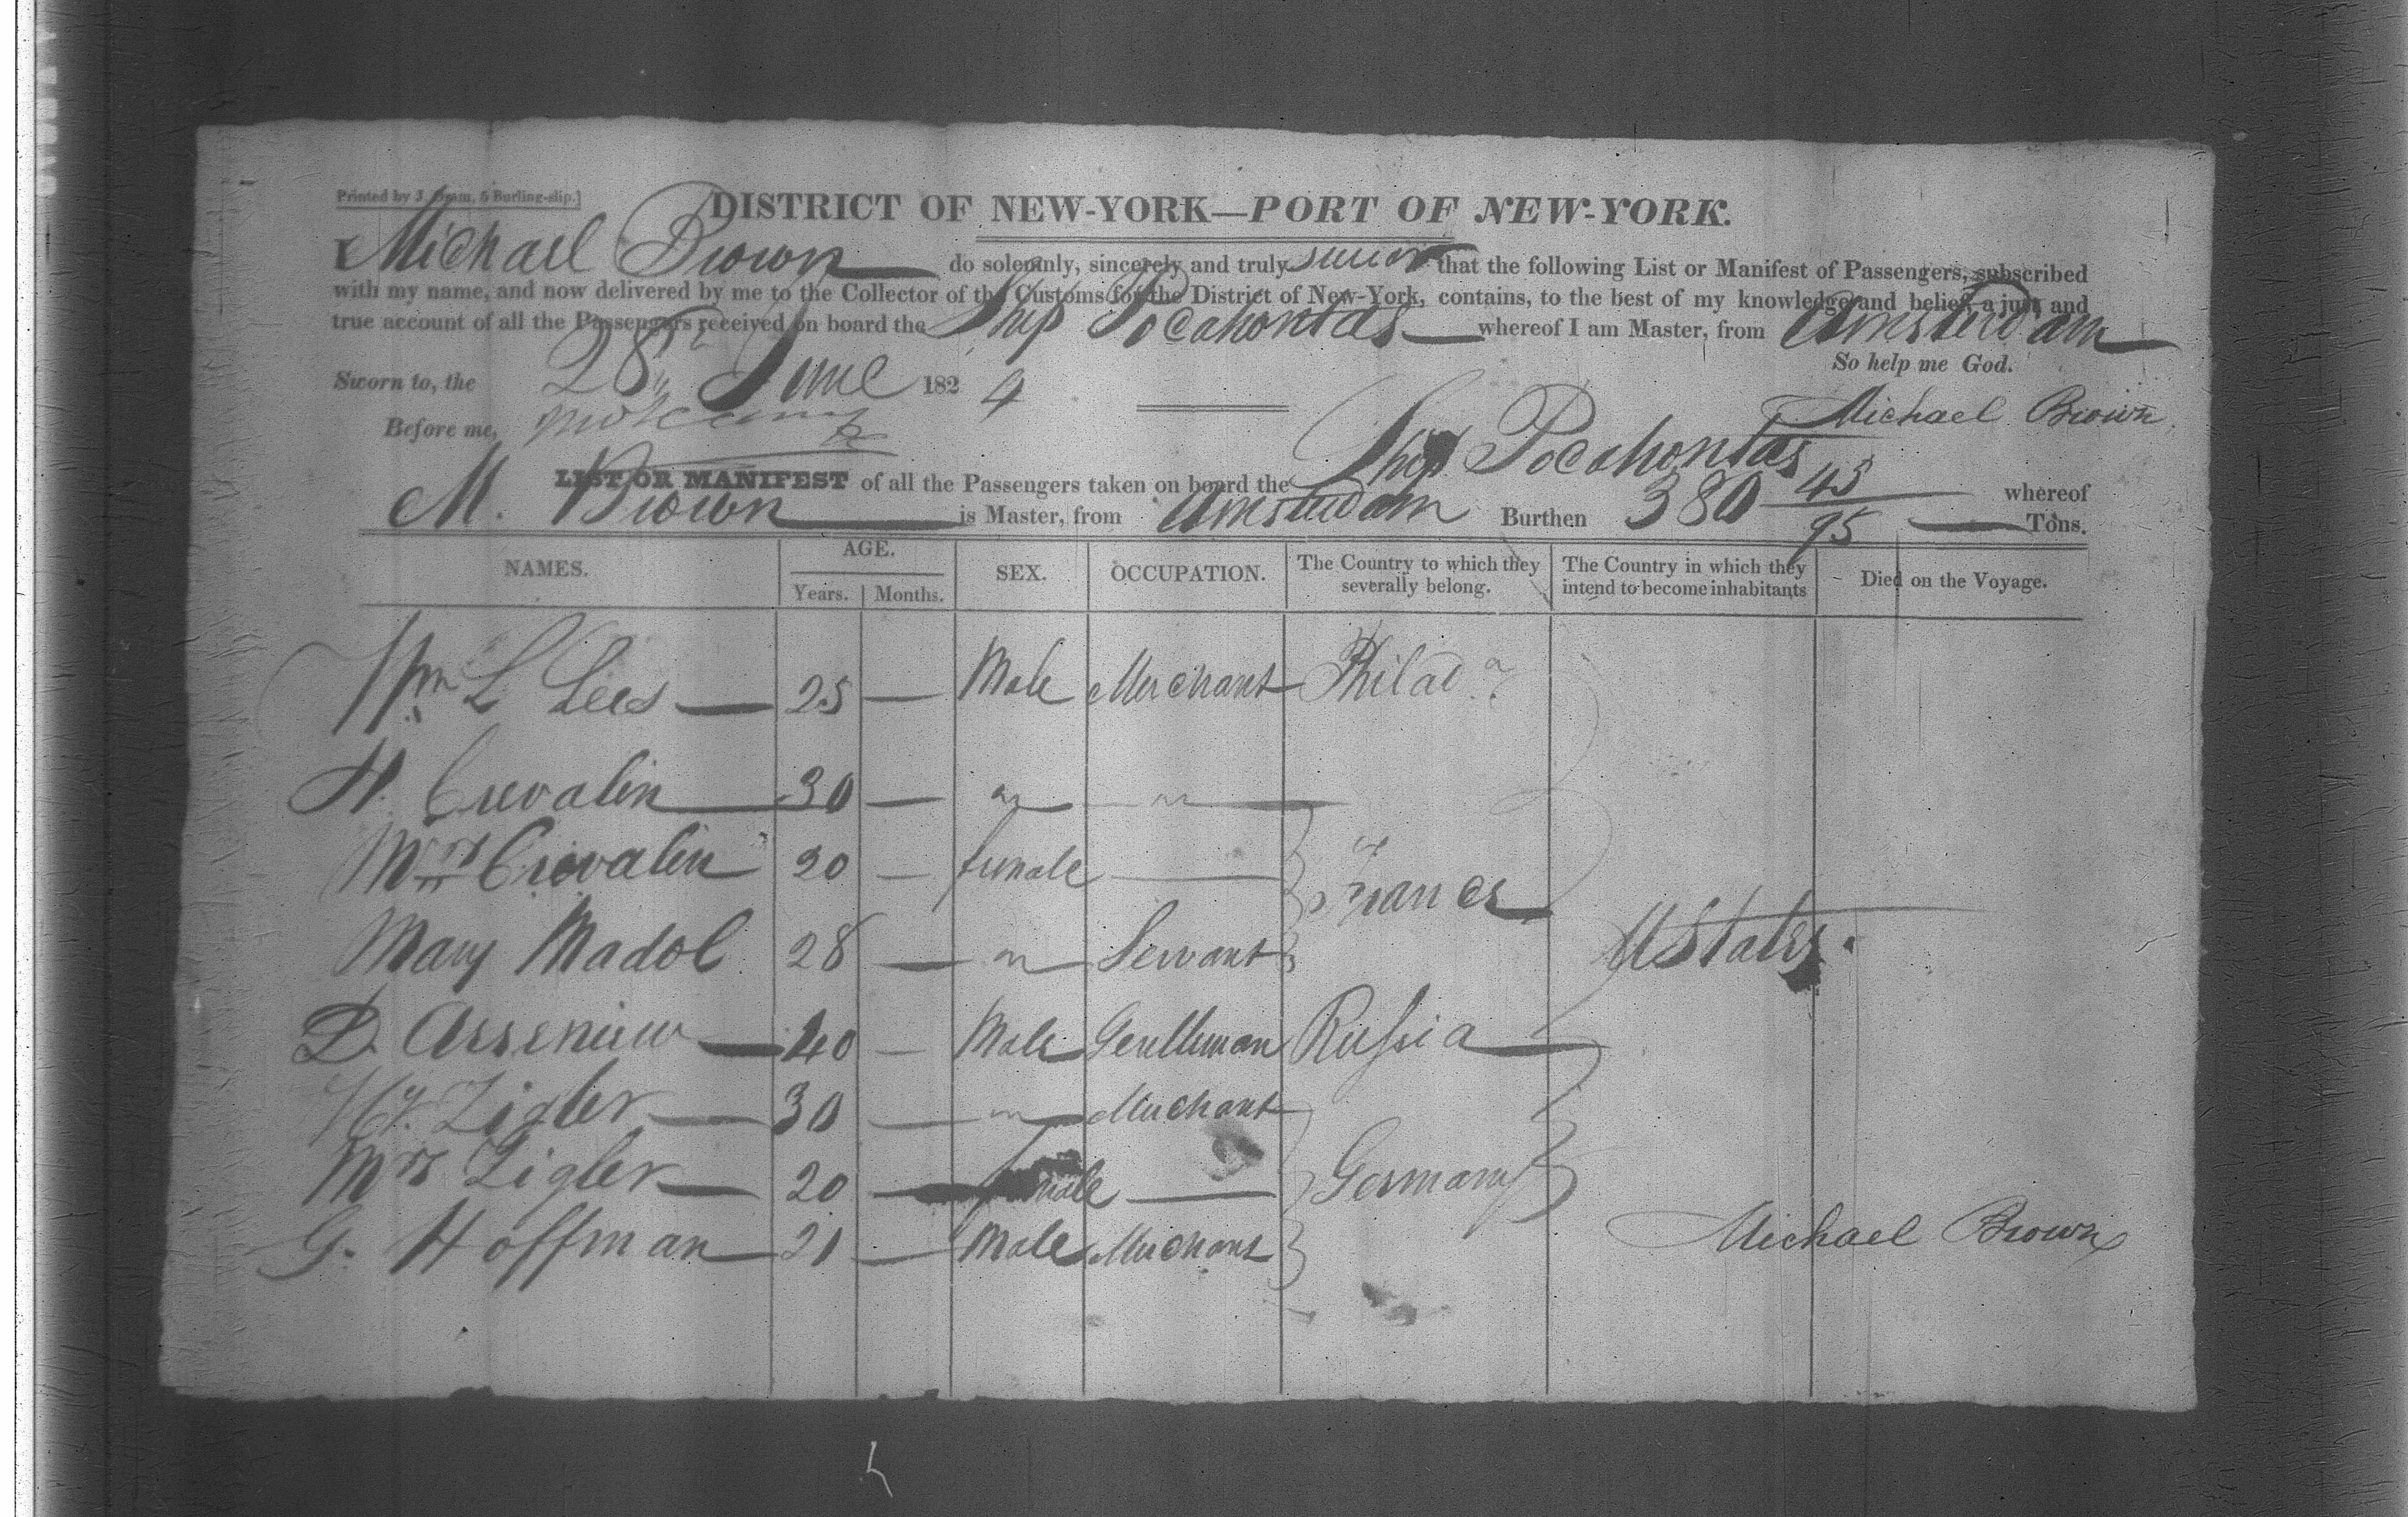 Printed by J. Oram, 5 Burling-slip.]
DISTRICT OF NEW-YORK—PORT OF NEW-YORK.
I Michael Brown do solemnly, sincerely and truly swear that the following List or Manifest of Passengers, subscribed
with my name, and now delivered by me to the Collector of the Customs for the District of New-York, contains, to the best of my knowledge and belief, a just and
true account of all the Passengers received on board the Ship Pocahontas whereof I am Master, from Amsterdam
So help me God.
Sworn to, the 28th June 1824
Michael Brown
Before me,
LIST OR MANIFEST of all the Passengers taken on board the Ship Pocahontas whereof
M. Brown is Master, from Amsterdam Burthen 380 45/95 Tons.
NAMES. AGE. Years. Months. SEX. OCCUPATION. The Country to which they severally belong. The Country in which they intend to become inhabitants Died on the Voyage.
Wm L Lees — 25 — Male Merchant Philada
H. Crevalin 30 — " "
Mrs Crevalin 20 — female —
France
Mary Madol 28 — " Servant
U States.
D. Arseniew — 40 — Male Gentleman Russia
Hy. Zigler — 30 — " Merchant
Mrs Zigler — 20 — female — Germany
G. Hoffman 21 — Male Merchant
Michael Brown